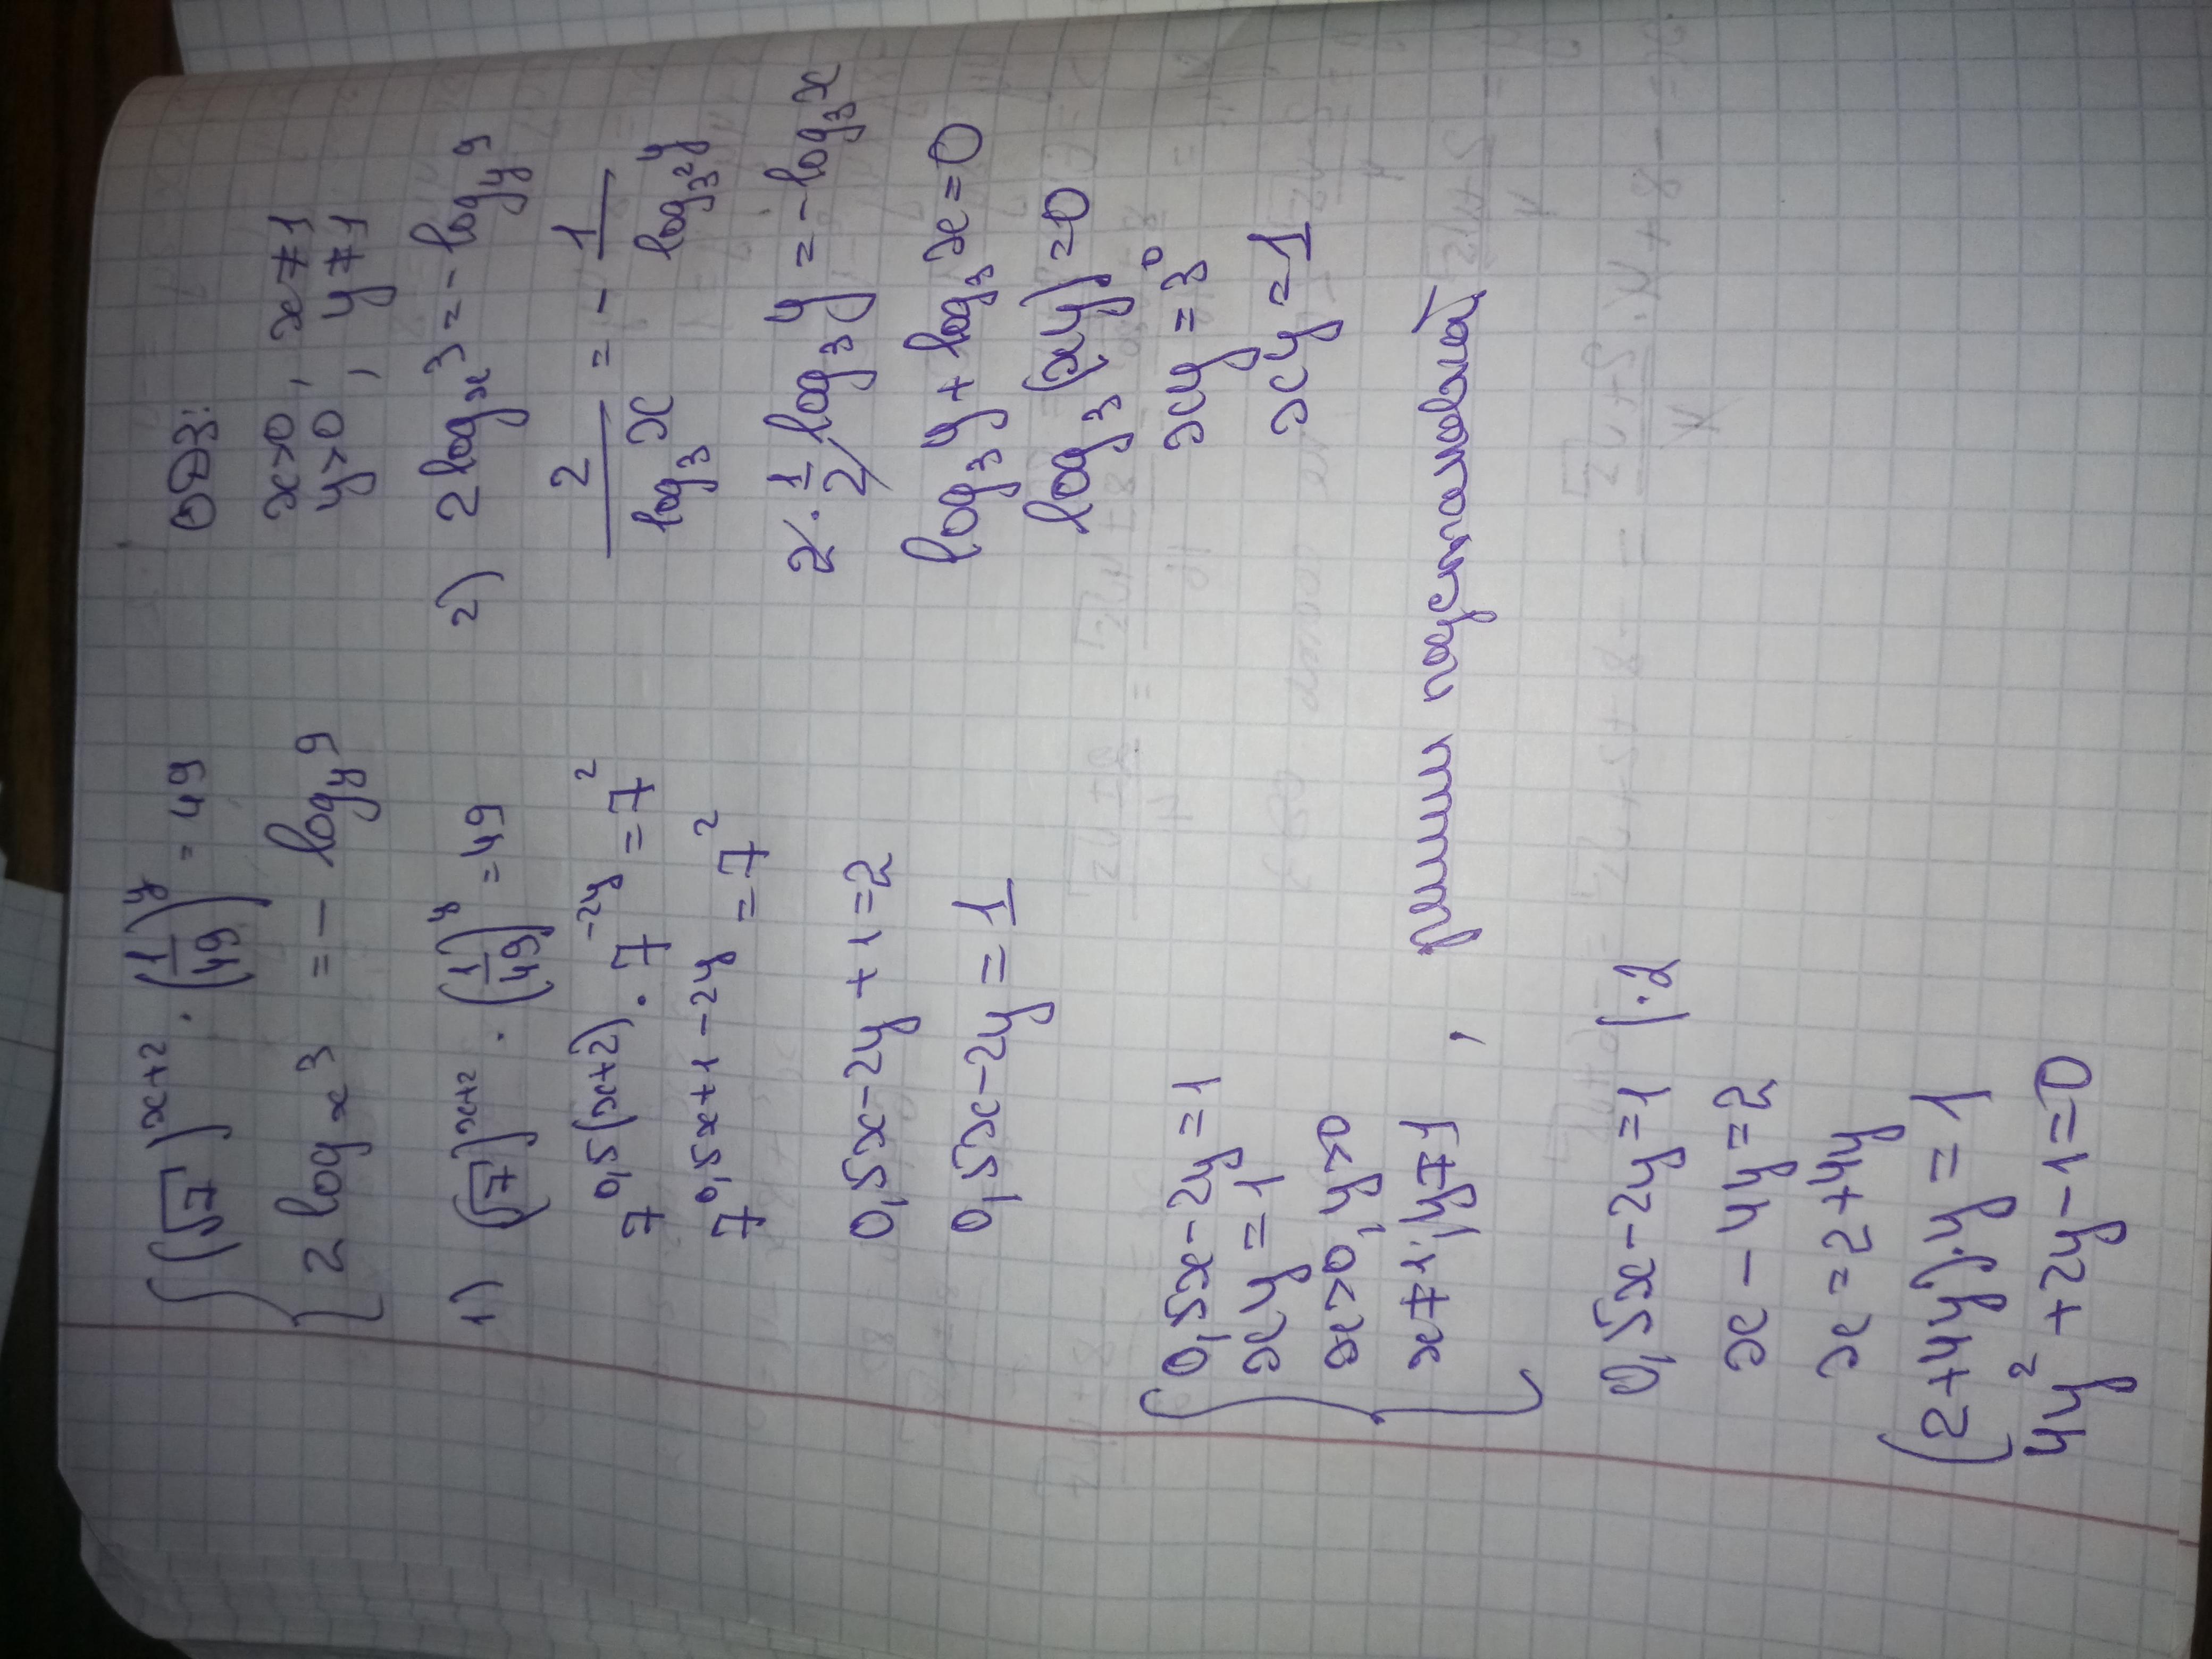 { (√7)^(x+2) · (1/49)^y = 49
2 log_x 3 = - log_y 9
ОДЗ:
x>0, x≠1
y>0, y≠1
1) (√7)^(x+2) · (1/49)^y = 49
7^(0,5(x+2)) · 7^(-2y) = 7^2
7^(0,5x+1-2y) = 7^2
0,5x-2y+1=2
0,5x-2y=1
2) 2 log_x 3 = - log_y 9
2/(log_3 x) = - 1/(log_(3^2) y)
2 · 1/2 log_3 y = -log_3 x
log_3 y + log_3 x = 0
log_3 (xy) = 0
xy = 3^0
xy = 1
{ 0,5x-2y=1
xy=1
x>0, y>0
x≠1, y≠1 , решим подстановкой
0,5x-2y=1 |·2
x-4y=2
x=2+4y
(2+4y)·y=1
4y^2+2y-1=0